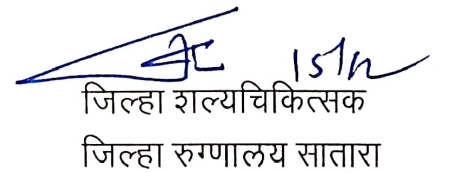 15/12
जिल्हा शल्यचिकित्सक
जिल्हा रुग्णालय सातारा